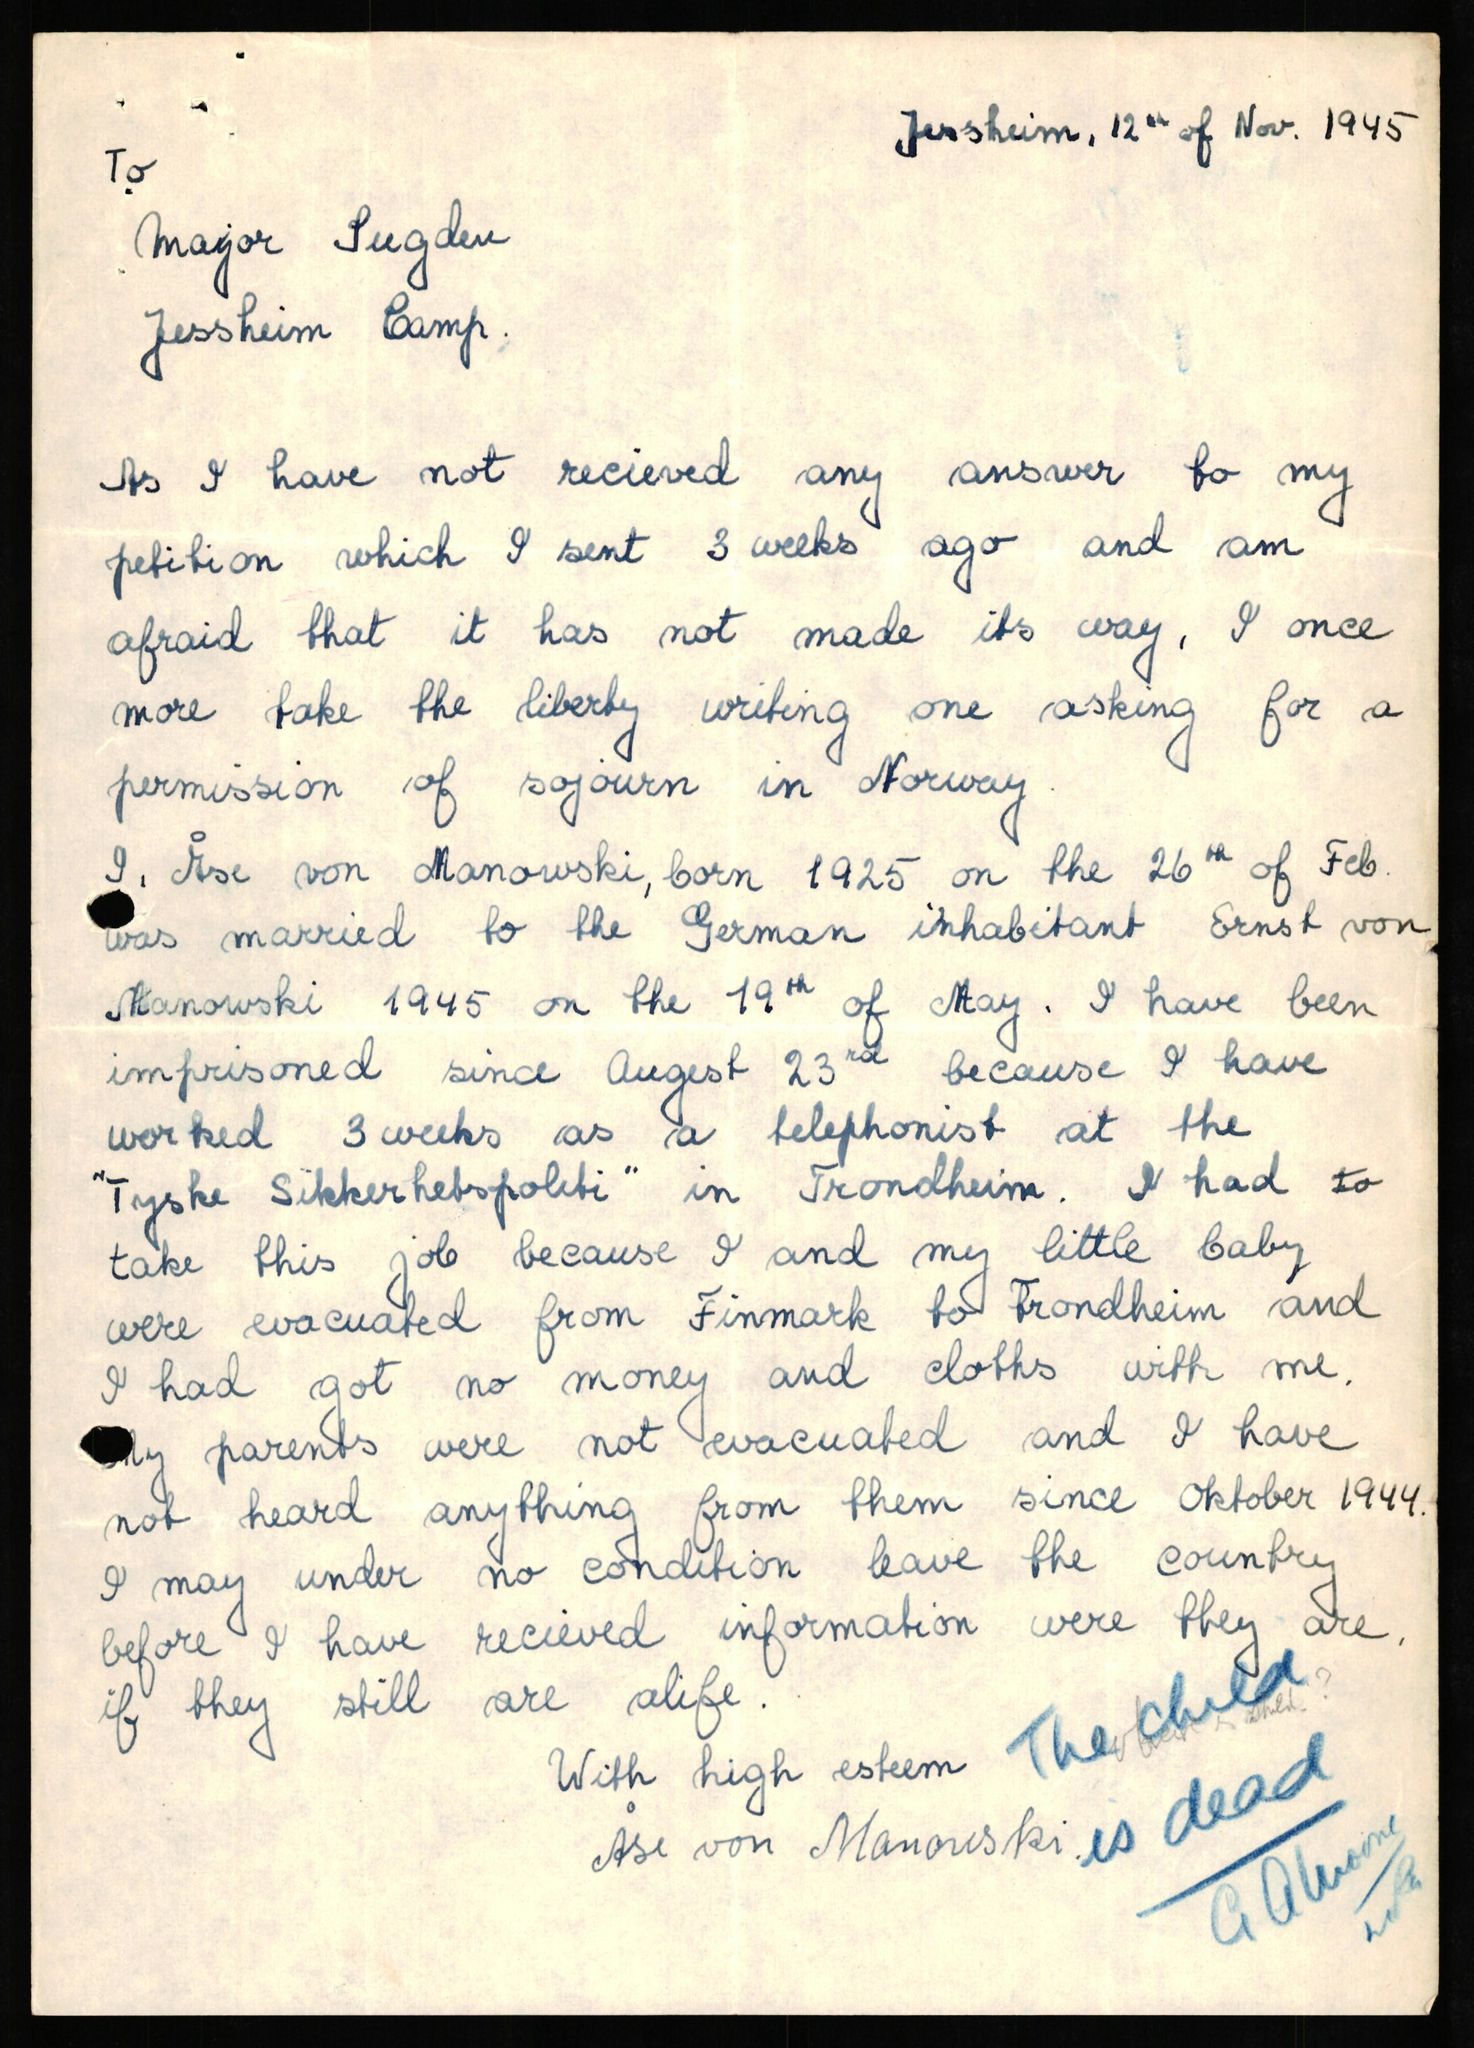 Jessheim, 12th of Nov. 1945
To
Major Sugden
Jessheim Camp.
As I have not recieved any answer to my
petition which I sent 3 weeks ago and am
afraid that it has not made its way, I once
more take the liberty writing one asking for a
permission of sojourn in Norway.
I, Åse von Manowski, born 1925 on the 26th of Feb.
was married to the German inhabitant Ernst von
Manowski 1945 on the 19th of May. I have been
imprisoned since Augest 23rd because I have
worked 3 weeks as a telephonist at the
"Tyske Sikkerhetspoliti" in Trondheim. I had to
take this job because I and my little baby
were evacuated from Finmark to Trondheim and
I had got no money and cloths with me.
My parents were not evacuated and I have
not heard anything from them since Oktober 1944.
I may under no condition leave the country
before I have recieved information were they are,
if they still are alife.
With high esteem
Åse von Manowski.
The child
is dead